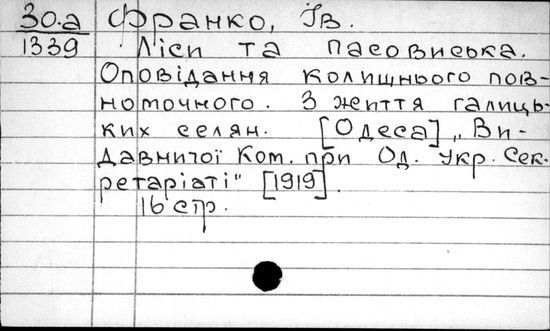 30.а Франко, Ів.
1339 Ліси та пасовиська.
Оповідання колишнього пов-
номочного. З життя галиць-
ких селян. [Одеса] „Ви-
давничої Ком. при Од. Укр. Сек-
ретаріаті" [1919].
16 стр.